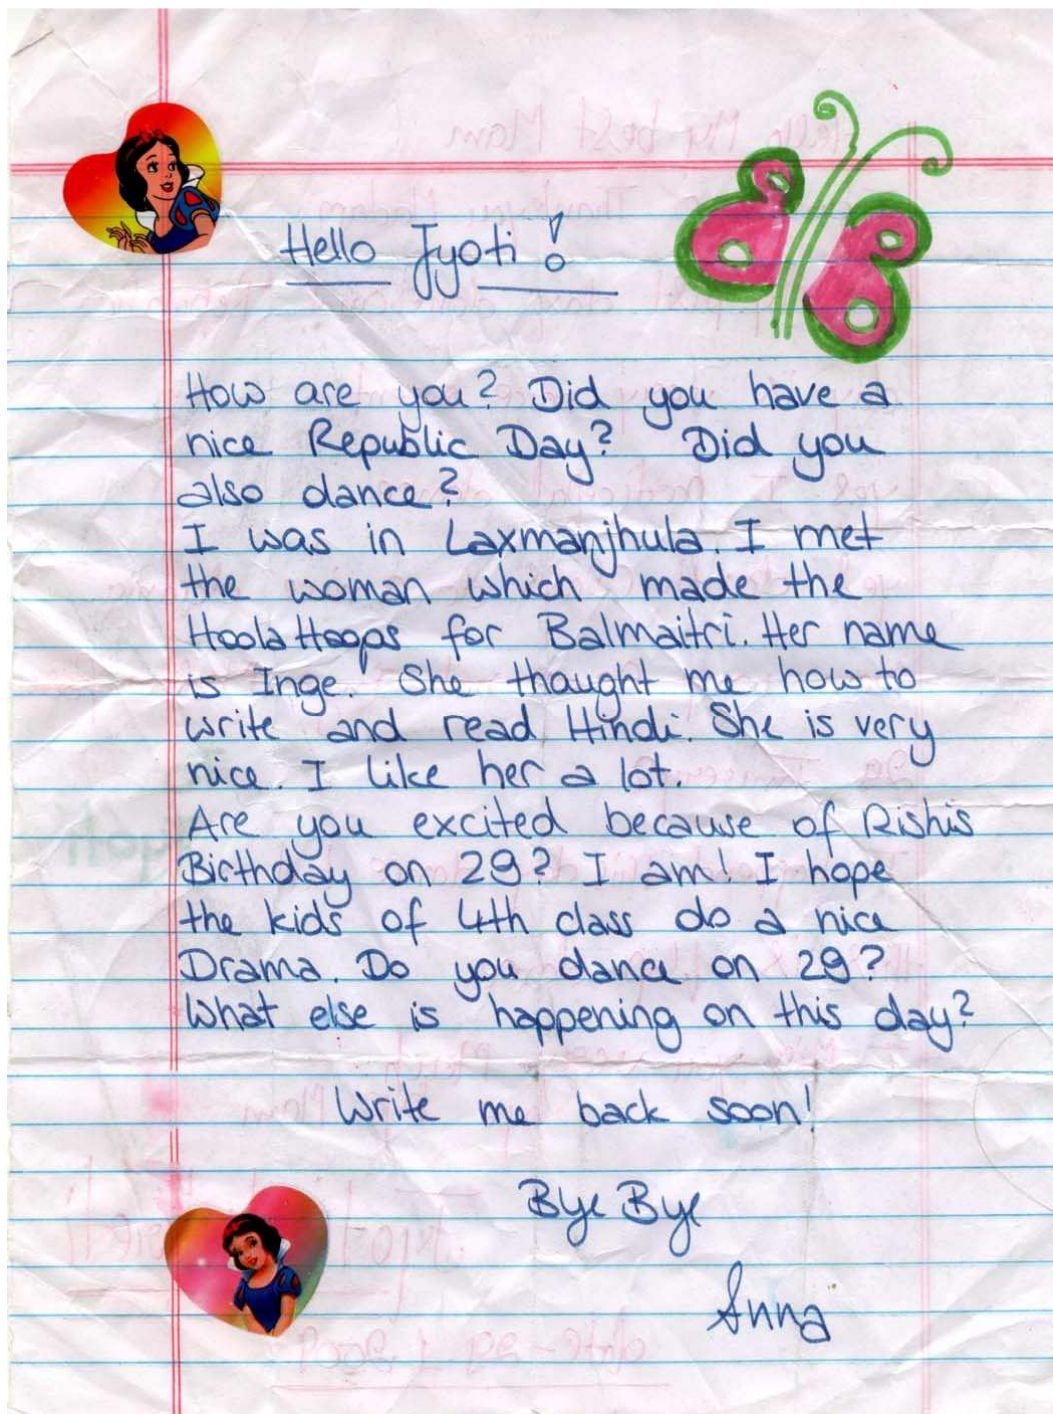 Hello Jyoti!
How are you? Did you have a
nice Republic Day? Did you
also dance?
I was in Laxmanjhula. I met
the woman which made the
Hoola Hoops for Balmaitri. Her name
is Inge. She thaught me how to
write and read Hindi. She is very
nice. I like her a lot.
Are you excited because of Rishis
Birthday on 29? I am! I hope
the kids of 4th class do a nice
Drama. Do you dance on 29?
What else is happening on this day?
Write me back soon!
Bye Bye
Anna